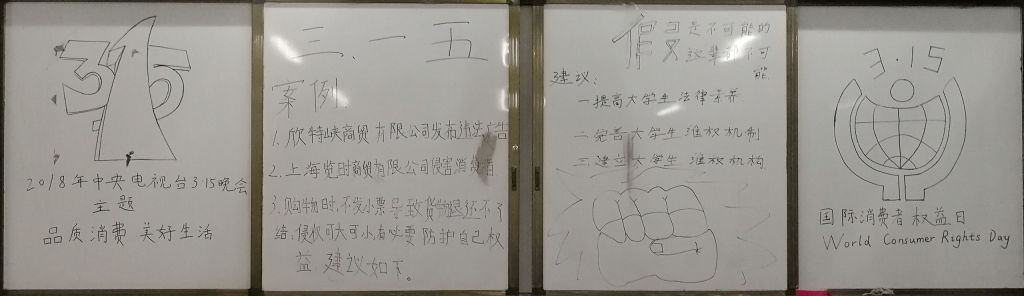 315
2018年中央电视台3·15晚会
主题
品质消费 美好生活
三.一五
案例
1.欣特峡商贸有限公司发布违法广告
2.上海览时商贸有限公司侵害消费者
3.购物时,不发小票导致货物退还不了
结:侵权可大可小,有必要防护自己权
益,建议如下。
假
是不可能的
这辈都不可
能
建议:
一提高大学生法律素养
二完善大学生维权机制
三建立大学生维权机构
3·15
国际消费者权益日
World Consumer Rights Day